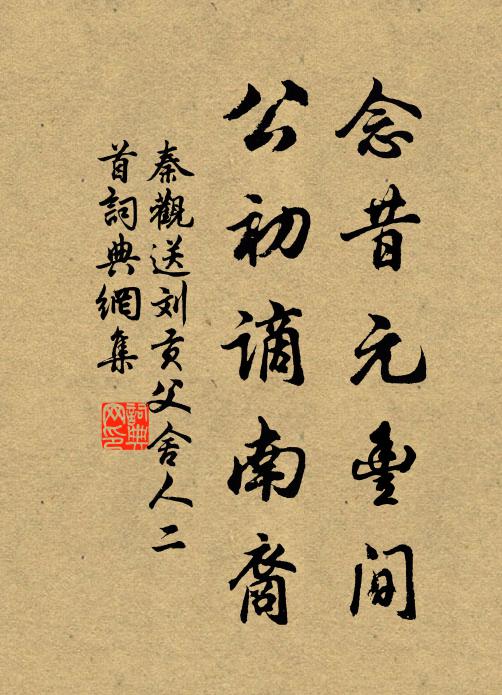 念昔元豊间
公初謫南裔
秦觀送刘貢父舍人二
首詞典網集
詞典
网印